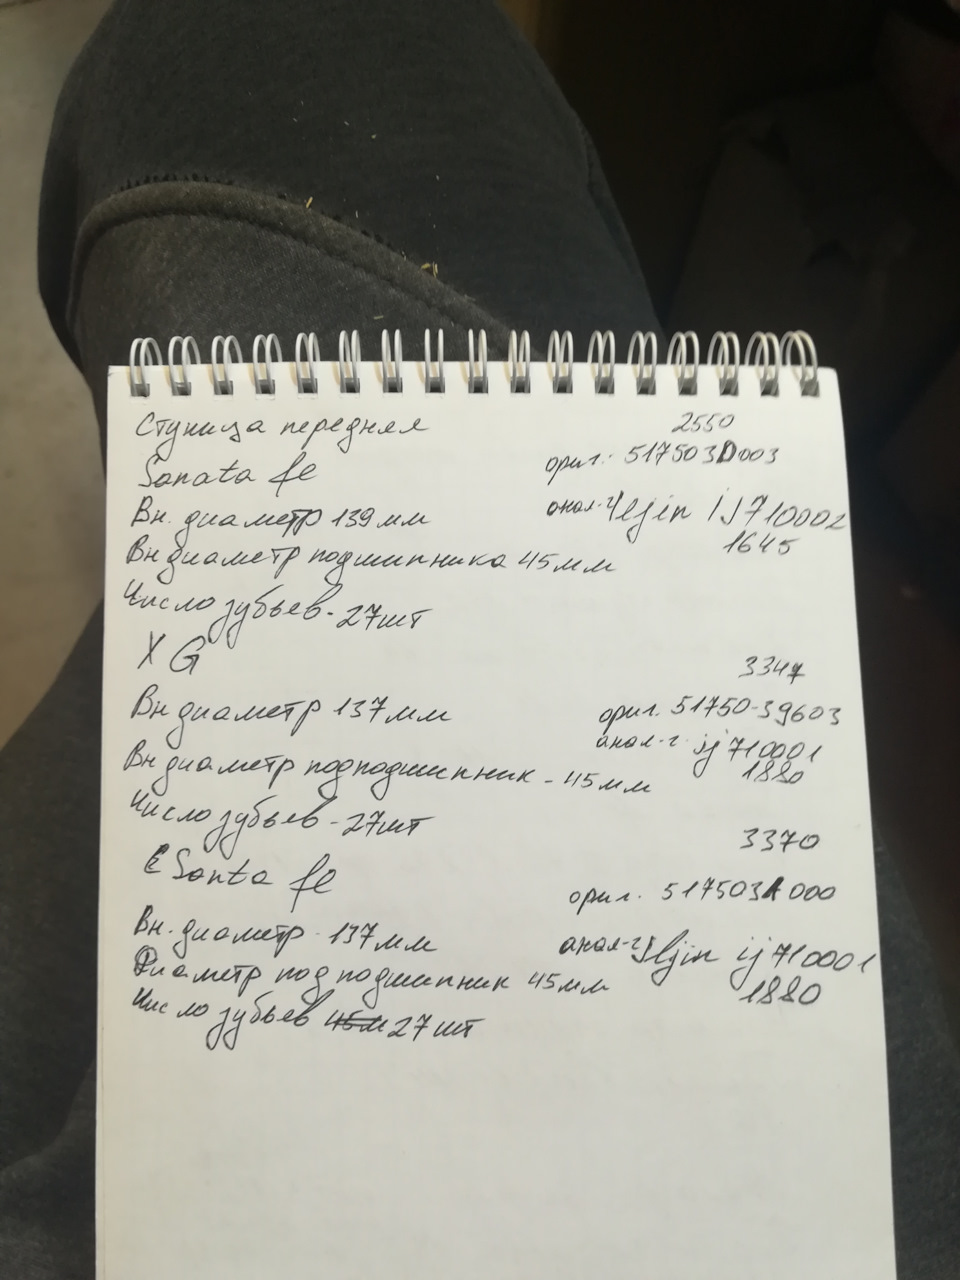 Ступица передняя 2550
Sanata fe ориг: 517503D003
Вн. диаметр 139мм анал-г Iljin IJ710002
1645
Вн диаметр подшипника 45мм
Число зубьев - 27шт
X G 3347
Вн диаметр 137мм ориг. 51750-39603
анал-г ij 710001
1880
Вн диаметр подподшипник - 45мм
Число зубьев - 27шт
3370
Santa fe ориг. 517503A000
Вн. диаметр - 137мм анал-г Iljin ij 710001
1880
Диаметр под подшипник 45мм
Число зубьев 45м 27шт